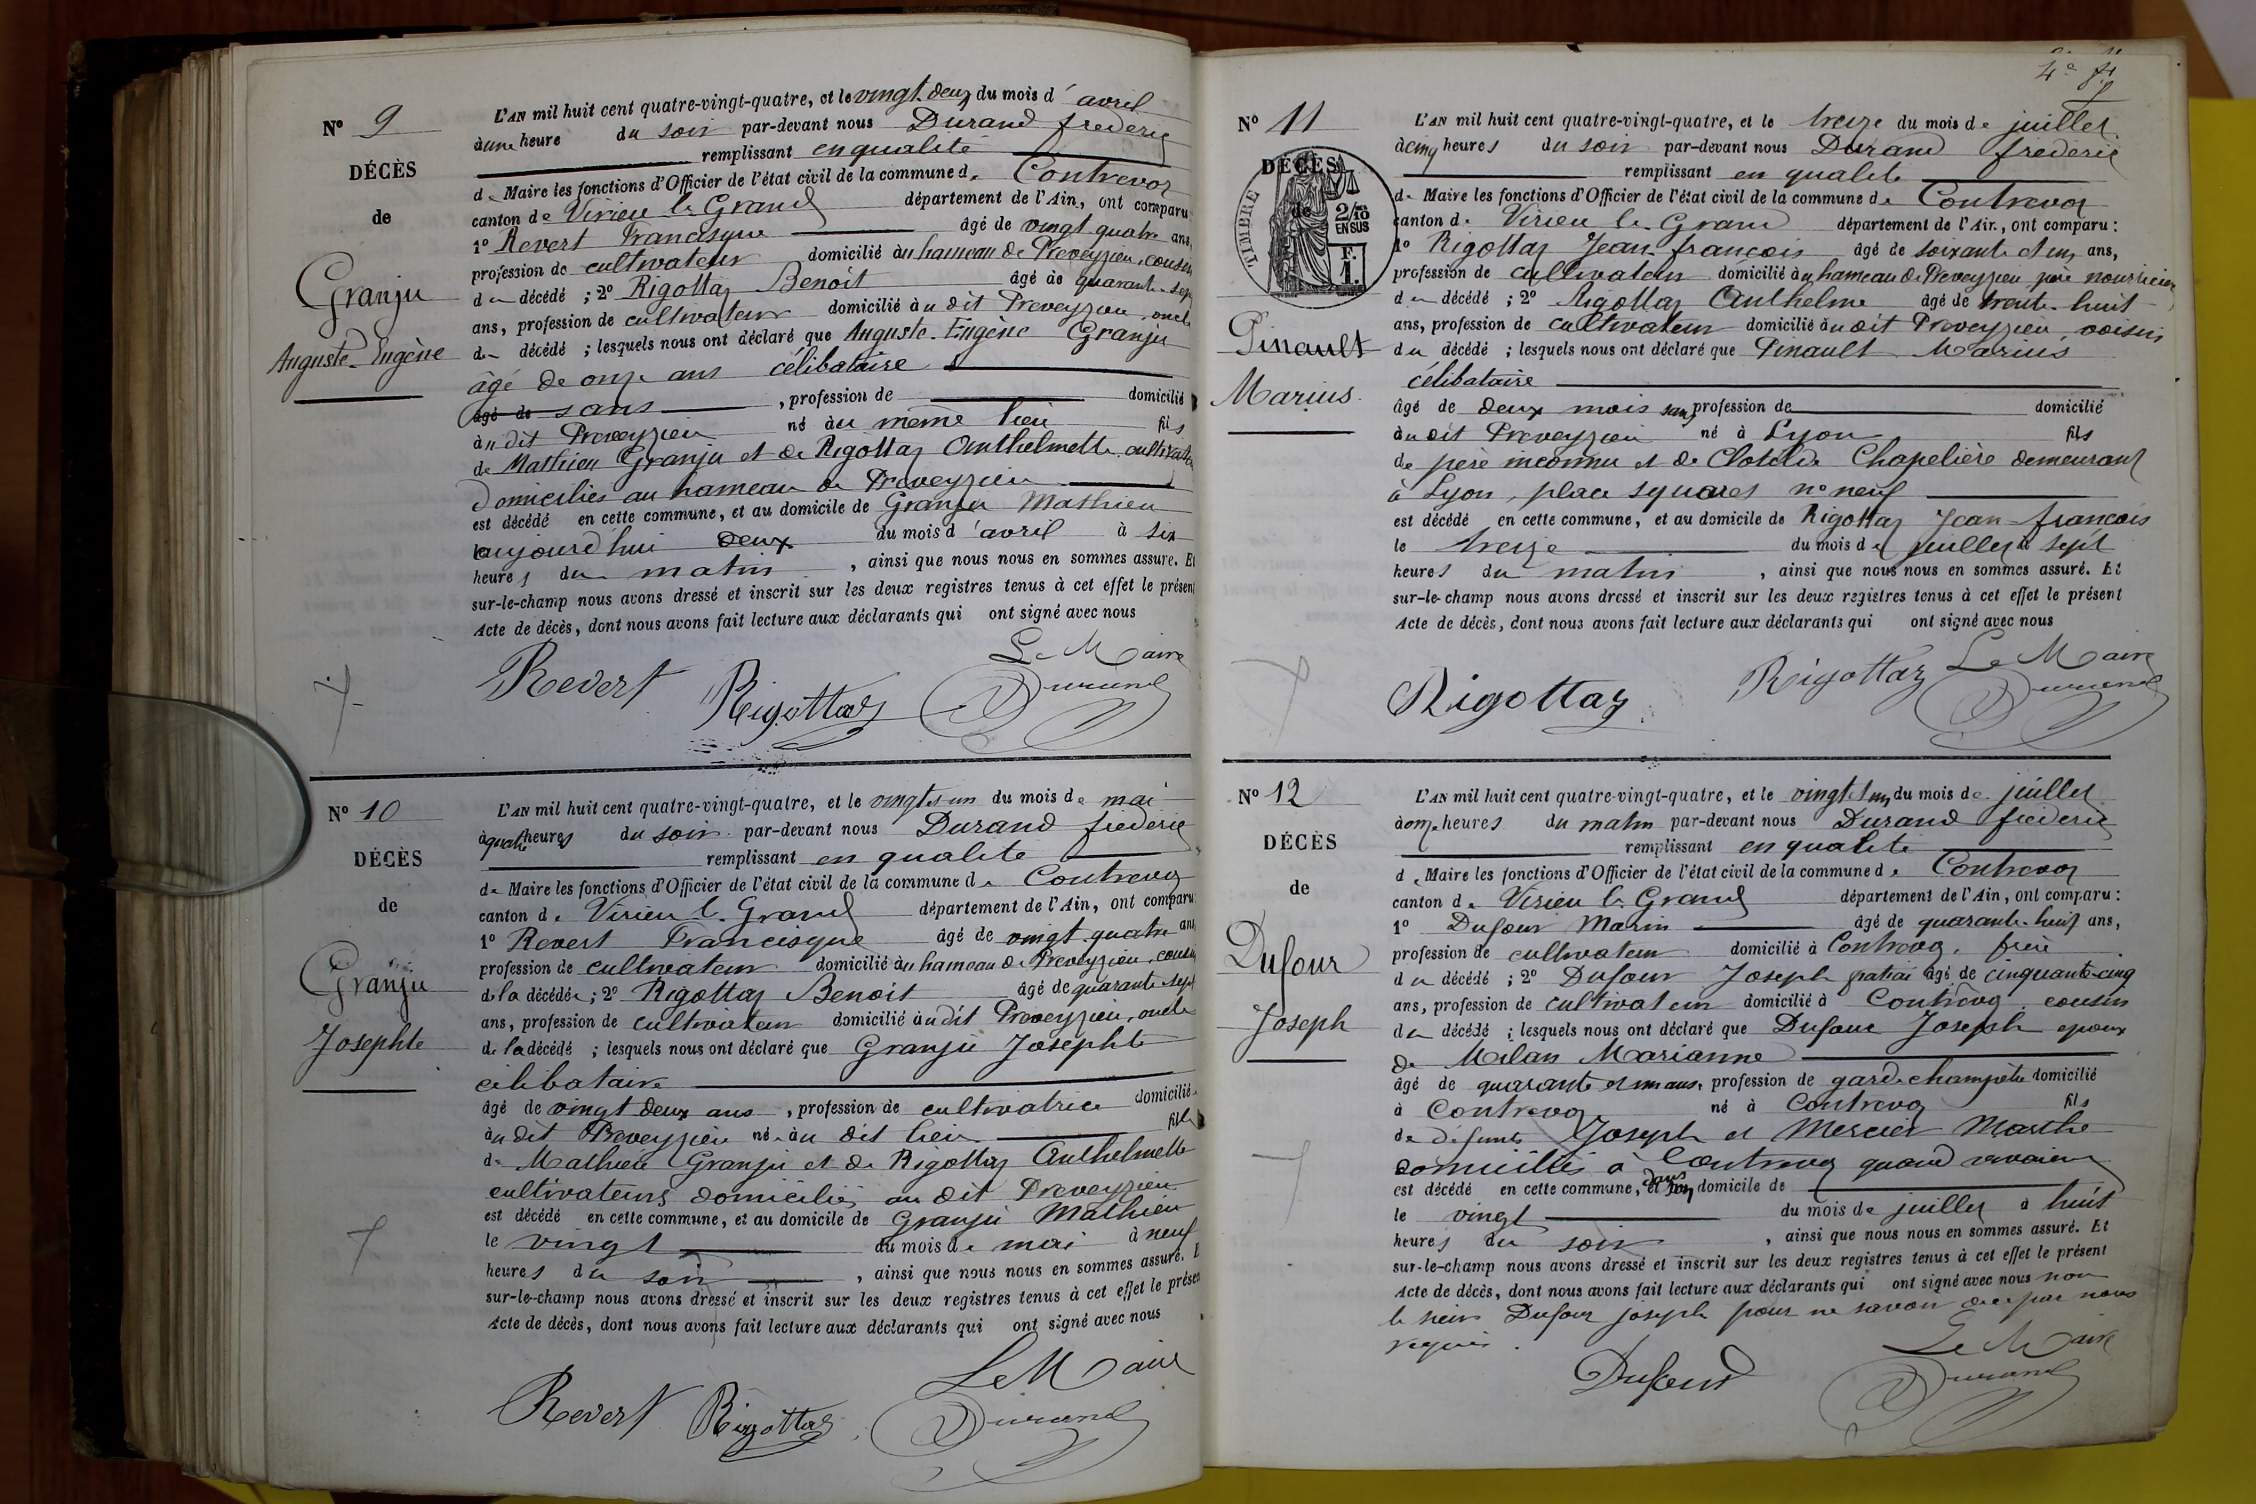 Nº 9
DÉCÈS
de
Granju
Auguste-Eugène
L'AN mil huit cent quatre-vingt-quatre, et le vingt-deux du mois d'avril
à une heure du soir par-devant nous Durand frederic
remplissant en qualité
de Maire les fonctions d'Officier de l'état civil de la commune de Contrevoz
canton de Virieu le Grand département de l'Ain, ont comparu
1º Revert Francisque âgé de vingt quatre ans,
profession de cultivateur domicilié au hameau de Preveyzieu, cousin
du décédé ; 2º Rigottaz Benoit âgé de quarante-sept
ans, profession de cultivateur domicilié au dit Preveyzieu, oncle
du décédé ; lesquels nous ont déclaré que Auguste-Eugène Granju
âgé de onze ans célibataire
âgé de sans , profession de domicilié
au dit Preveyzieu né au même lieu fils
de Mathieu Granju et de Rigottaz Anthelmette cultivateurs
domiciliés au hameau de Preveyzieu
est décédé en cette commune, et au domicile de Granju Mathieu
aujourd'hui deux du mois d'avril à six
heures du matin , ainsi que nous nous en sommes assuré. Et
sur-le-champ nous avons dressé et inscrit sur les deux registres tenus à cet effet le présent
Acte de décès, dont nous avons fait lecture aux déclarants qui ont signé avec nous
Le Maire
Revert Rigottaz Durand
Nº 10
DÉCÈS
de
Granju
Josephte
L'AN mil huit cent quatre-vingt-quatre, et le vingt et un du mois de mai
à quatre heures du soir par-devant nous Durand frederic
remplissant en qualité
de Maire les fonctions d'Officier de l'état civil de la commune de Contrevoz
canton de Virieu le Grand département de l'Ain, ont comparu
1º Revert Francisque âgé de vingt quatre ans
profession de cultivateur domicilié au hameau de Preveyzieu, cousin
de la décédée ; 2º Rigottaz Benoit âgé de quarante sept
ans, profession de cultivateur domicilié au dit Preveyzieu, oncle
de la décédé ; lesquels nous ont déclaré que Granju Josephte
célibataire
âgé de vingt deux ans , profession de cultivatrice domiciliée
au dit Preveyzieu née au dit lieu fille
de Mathieu Granju et de Rigottaz Anthelmette
cultivateurs domiciliés au dit Preveyzieu
est décédé en cette commune, et au domicile de Granju Mathieu
le vingt du mois de mai à neuf
heures du soir , ainsi que nous nous en sommes assuré. E
sur-le-champ nous avons dressé et inscrit sur les deux registres tenus à cet effet le présen
Acte de décès, dont nous avons fait lecture aux déclarants qui ont signé avec nous
Le Maire
Revert Rigottaz Durand
4e
Nº 11
DÉCÈS
de
TIMBRE
2/10
EN SUS
F.
1.
Pinault
Marius
L'AN mil huit cent quatre-vingt-quatre, et le treize du mois de juillet
à cinq heures du soir par-devant nous Durand frederic
remplissant en qualité
de Maire les fonctions d'Officier de l'état civil de la commune de Contrevoz
canton de Virieu le Grand département de l'Ain, ont comparu :
1º Rigottaz Jean-françois âgé de soixante et un ans,
profession de cultivateur domicilié au hameau de Preveyzieu père nourricier
du décédé ; 2º Rigottaz Anthelme âgé de trente-huit
ans, profession de cultivateur domicilié au dit Preveyzieu voisin
du décédé ; lesquels nous ont déclaré que Pinault Marius
célibataire
âgé de deux mois sans profession de domicilié
au dit Preveyzieu né à Lyon fils
de père inconnu et de Clotilde Chapelière demeurant
à Lyon, place squares nº neuf
est décédé en cette commune, et au domicile de Rigottaz Jean-françois
le treize du mois de juillet à sept
heures du matin , ainsi que nous nous en sommes assuré. Et
sur-le-champ nous avons dressé et inscrit sur les deux registres tenus à cet effet le présent
Acte de décès, dont nous avons fait lecture aux déclarants qui ont signé avec nous
Le Maire
Rigottaz Rigottaz Durand
Nº 12
DÉCÈS
de
Dufour
Joseph
L'AN mil huit cent quatre-vingt-quatre, et le vingt et un du mois de juillet
à onze heures du matin par-devant nous Durand frederic
remplissant en qualité
de Maire les fonctions d'Officier de l'état civil de la commune de Contrevoz
canton de Virieu le Grand département de l'Ain, ont comparu :
1º Dufour Marin âgé de quarante-huit ans,
profession de cultivateur domicilié à Contrevoz, frère
du décédé ; 2º Dufour Joseph âgé de cinquante-cinq
ans, profession de cultivateur domicilié à Contrevoz cousin
du décédé ; lesquels nous ont déclaré que Dufour Joseph epoux
de Milan Marianne
âgé de quarante et un ans, profession de garde champêtre domicilié
à Contrevoz né à Contrevoz fils
de défunts Joseph et Mercier Marthe
domiciliés à Contrevoz quand vivaient
est décédé en cette commune, et dans son domicile de
le vingt du mois de juillet à huit
heures du soir , ainsi que nous nous en sommes assuré. Et
sur-le-champ nous avons dressé et inscrit sur les deux registres tenus à cet effet le présent
Acte de décès, dont nous avons fait lecture aux déclarants qui ont signé avec nous non
le sieur Dufour joseph pour ne savoir de ce par nous
requis.
Le Maire
Dufour Durand